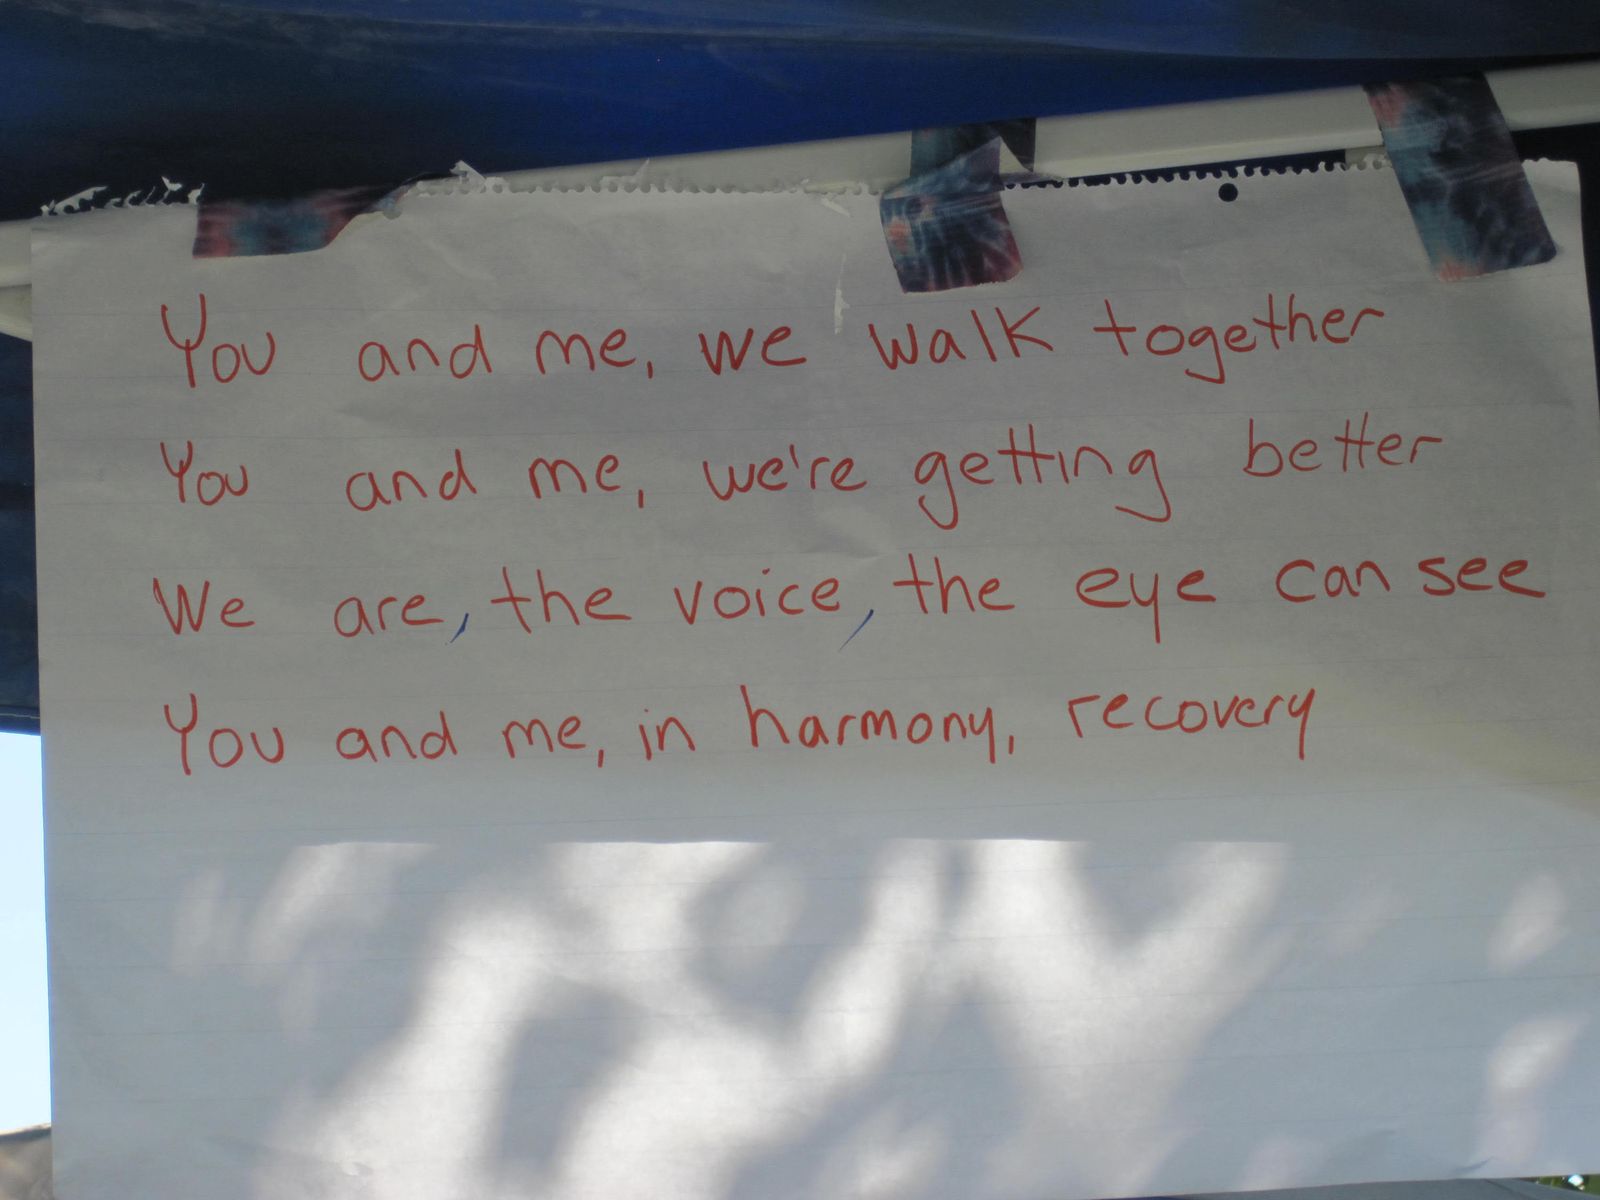 You and me, we walk together
You and me, we're getting better
We are, the voice, the eye can see
You and me, in harmony, recovery